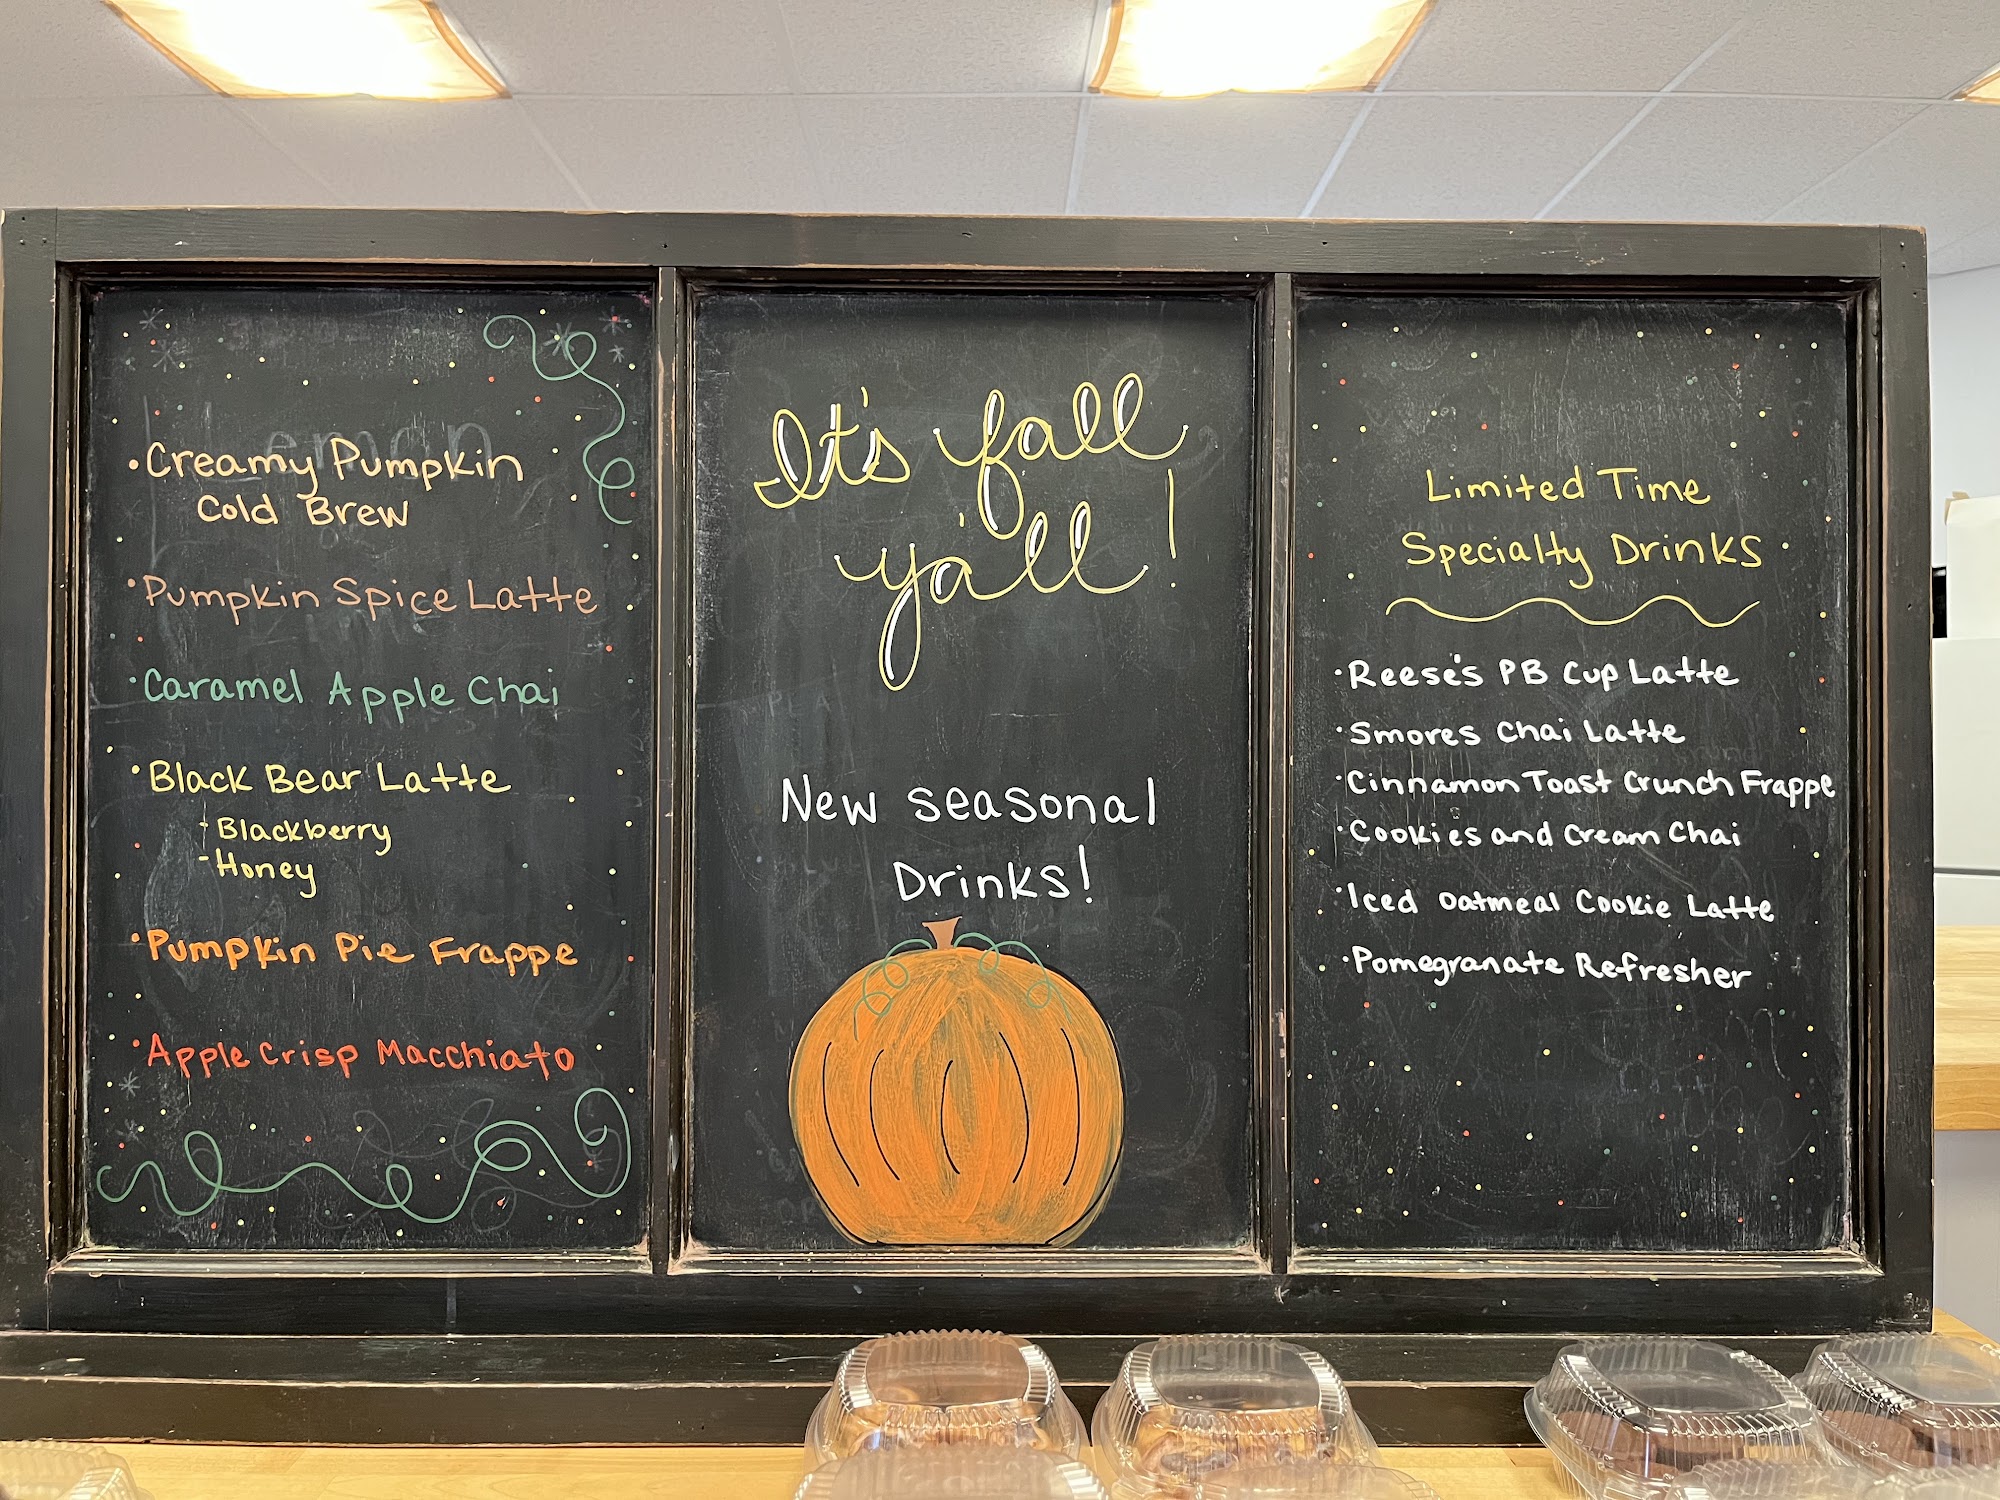 • Creamy Pumpkin
Cold Brew
• Pumpkin Spice Latte
• Caramel Apple Chai
• Black Bear Latte
- Blackberry
- Honey
• Pumpkin Pie Frappe
• Apple Crisp Macchiato
It's fall
y'all!
New seasonal
Drinks!
Limited Time
Specialty Drinks
• Reese's PB Cup Latte
• Smores Chai Latte
• Cinnamon Toast Crunch Frappe
• Cookies and Cream Chai
• Iced Oatmeal Cookie Latte
• Pomegranate Refresher